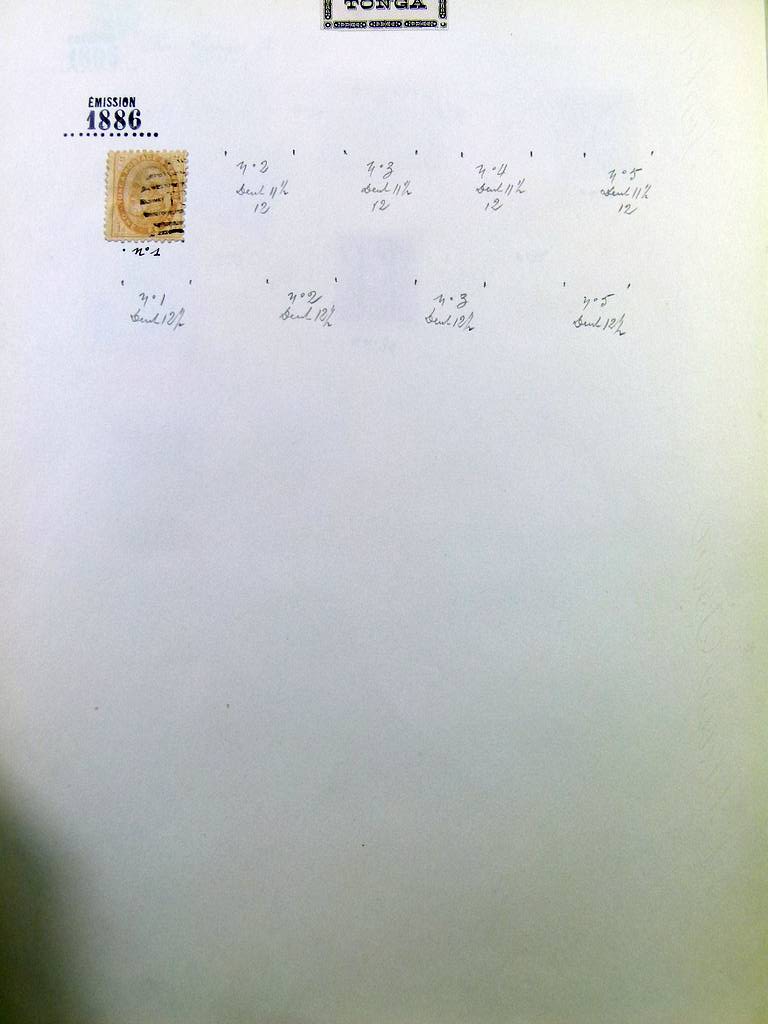 TONGA
ÉMISSION
1886
n°1
n°2
Dent 11½
12
n°3
Dent 11½
12
n°4
Dent 11½
12
n°5
Dent 11½
12
n°1
Dent 12½
n°2
Dent 12½
n°3
Dent 12½
n°5
Dent 12½